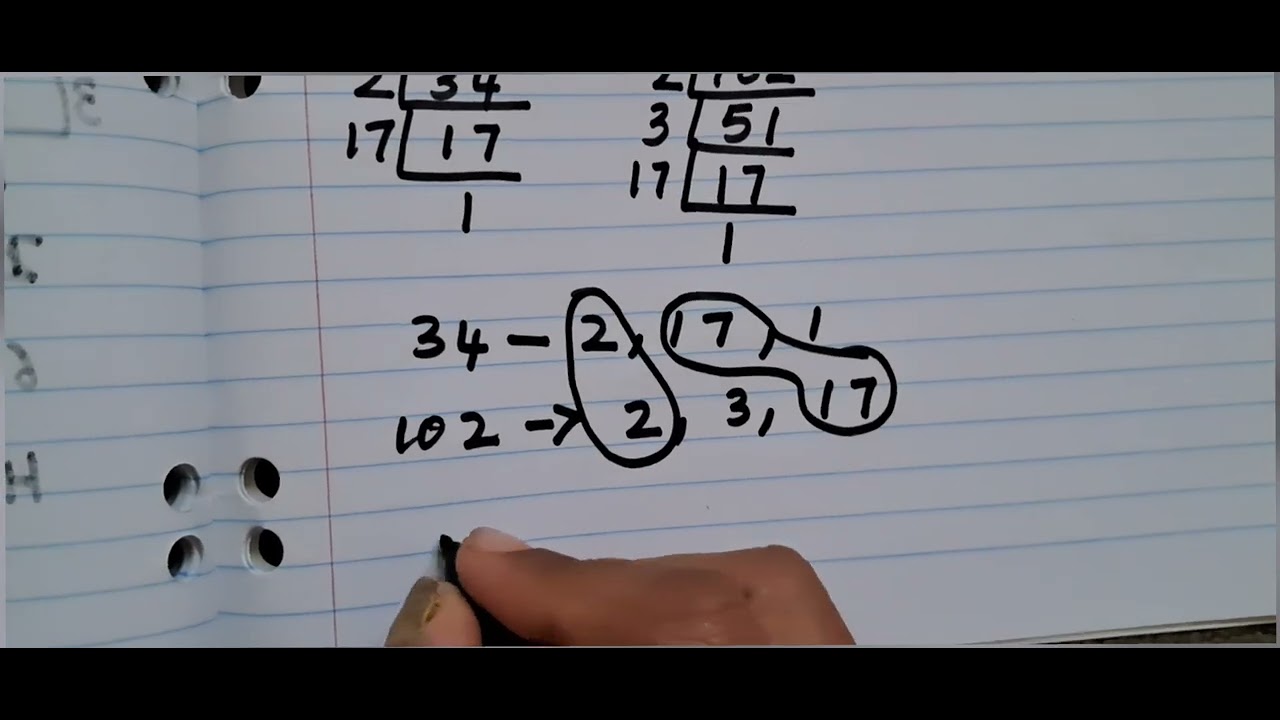 2 34 2 102
17 17 3 51
1 17 17
1
34 - 2, 17, 1
102 → 2, 3, 17